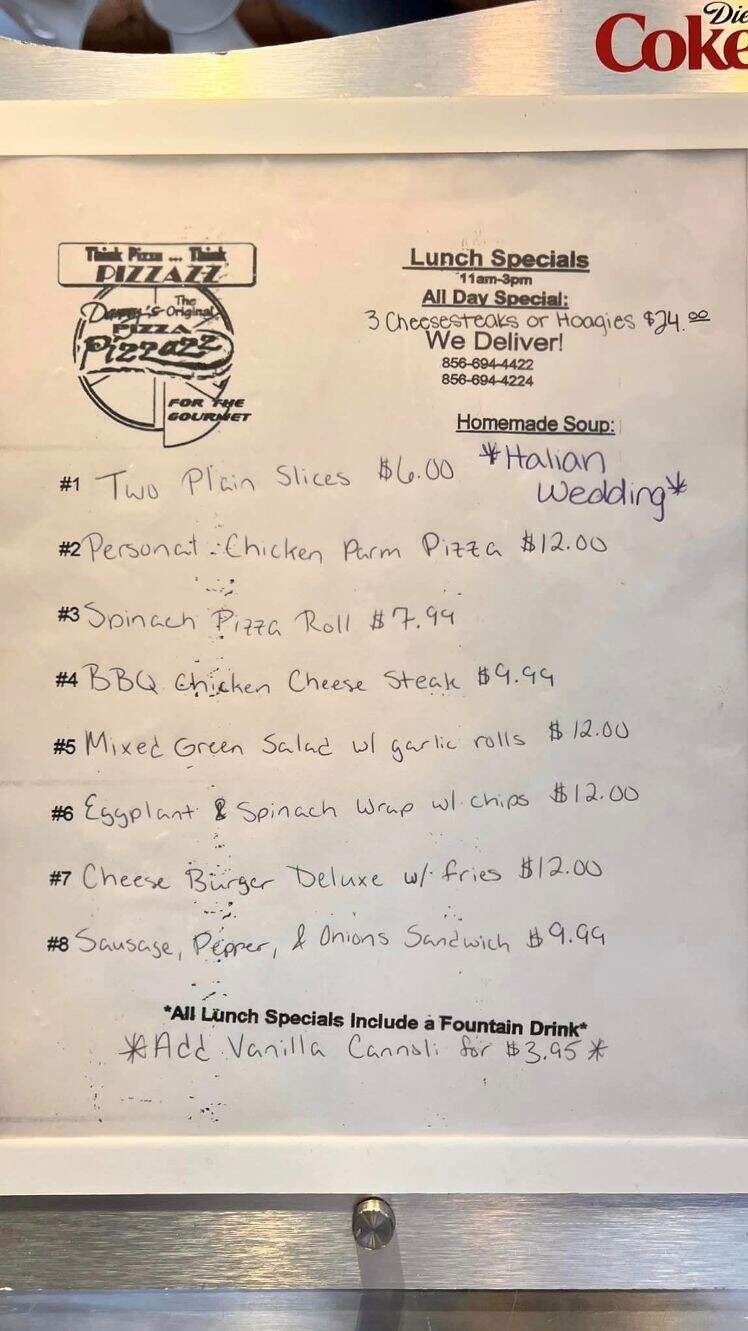 Die
Coke
Think Pizza ... Think
PIZZAZZ
The
Danny's Original
PIZZA
Pizzazz
FOR THE
GOURMET
Lunch Specials
11am-3pm
All Day Special:
3 Cheesesteaks or Hoagies $24.00
We Deliver!
856-694-4422
856-694-4224
Homemade Soup:
*Italian
Wedding*
#1 Two Plain Slices $6.00
#2 Personal Chicken Parm Pizza $12.00
#3 Spinach Pizza Roll $7.99
#4 BBQ Chicken Cheese Steak $9.99
#5 Mixed Green Salad w/ garlic rolls $12.00
#6 Eggplant & Spinach Wrap w/ chips $12.00
#7 Cheese Burger Deluxe w/ fries $12.00
#8 Sausage, Pepper, & Onions Sandwich $9.99
*All Lunch Specials Include a Fountain Drink*
*Add Vanilla Cannoli for $3.95*